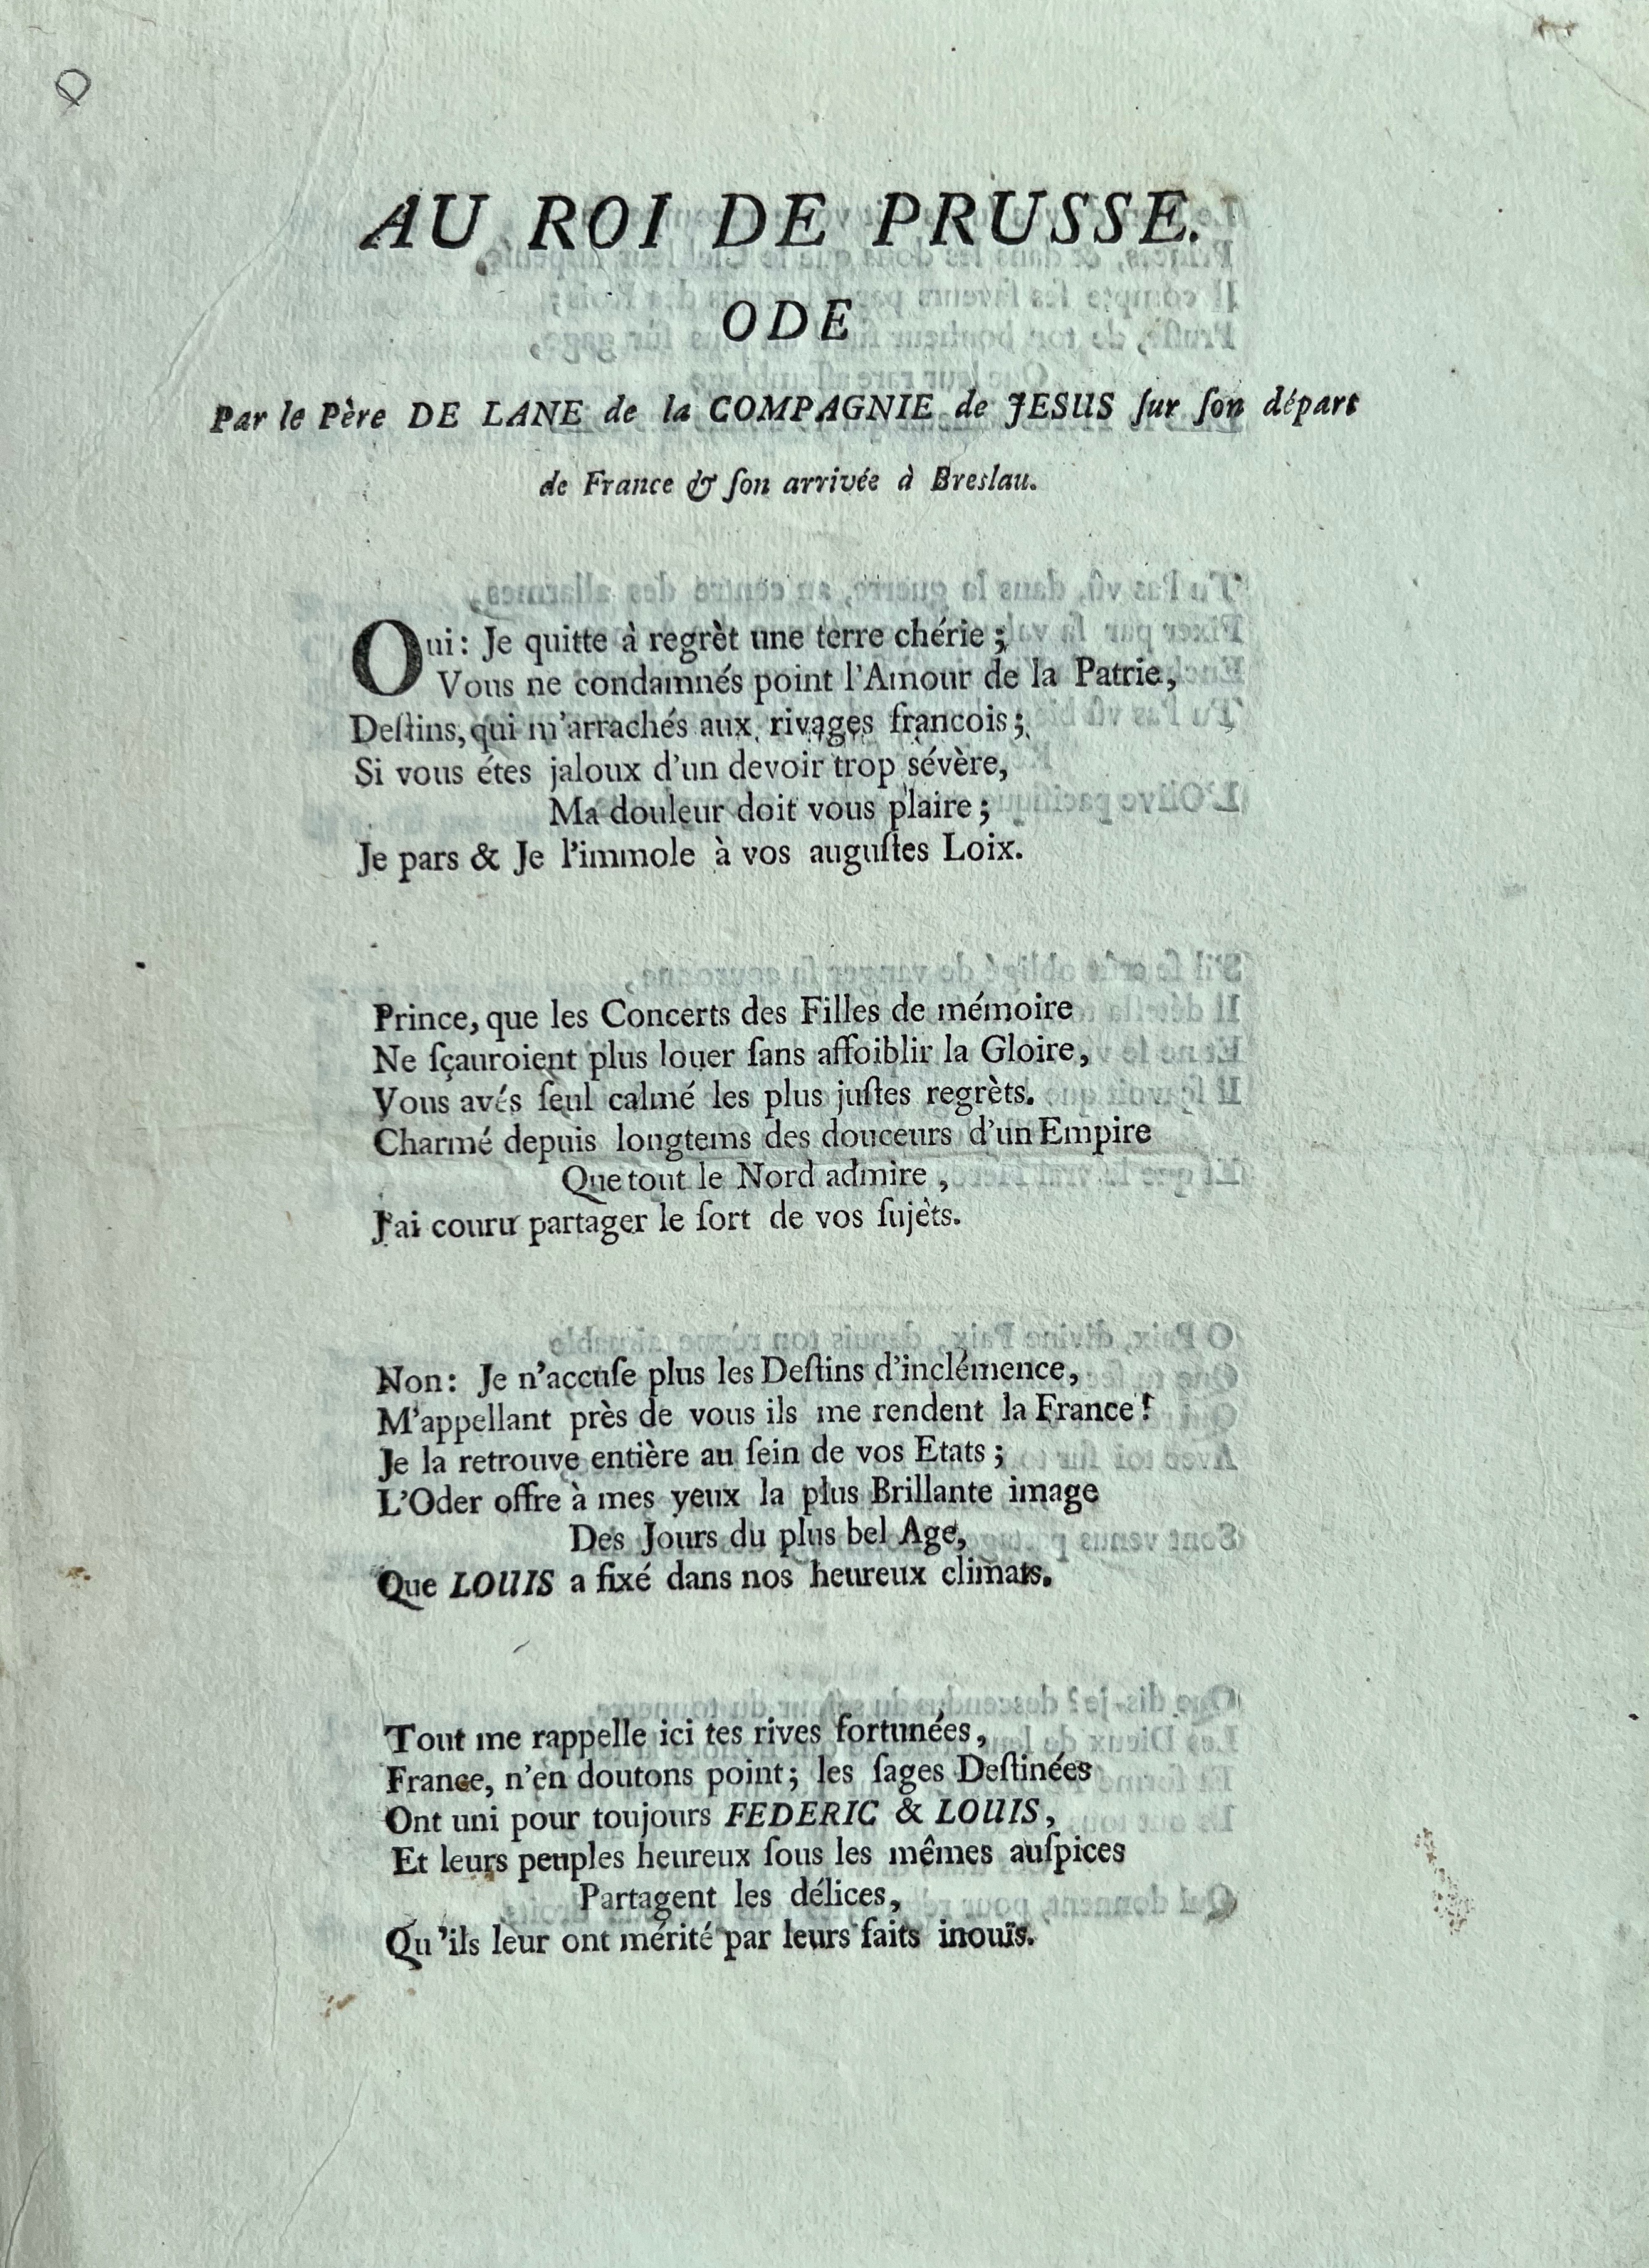 AU ROI DE PRUSSE.
ODE
Par le Père DE LANE de la COMPAGNIE de JESUS ſur ſon départ
de France & ſon arrivée à Breslau.
Oui: Je quitte à regrèt une terre chérie;
Vous ne condamnés point l'Amour de la Patrie,
Deſtins, qui m'arrachés aux rivages francois;
Si vous étes jaloux d'un devoir trop sévère,
Ma douleur doit vous plaire;
Je pars & Je l'immole à vos auguſtes Loix.
Prince, que les Concerts des Filles de mémoire
Ne ſçauroient plus louer ſans affoiblir la Gloire,
Vous avés ſeul calmé les plus juſtes regrèts.
Charmé depuis longtems des douceurs d'un Empire
Que tout le Nord admire,
J'ai couru partager le ſort de vos ſujèts.
Non: Je n'accuſe plus les Deſtins d'inclémence,
M'appellant près de vous ils me rendent la France!
Je la retrouve entière au ſein de vos Etats;
L'Oder offre à mes yeux la plus Brillante image
Des Jours du plus bel Age,
Que LOUIS a fixé dans nos heureux climats.
Tout me rappelle ici tes rives fortunées,
France, n'en doutons point; les ſages Deſtinées
Ont uni pour toujours FEDERIC & LOUIS,
Et leurs peuples heureux ſous les mêmes auſpices
Partagent les délices,
Qu'ils leur ont mérité par leurs faits inouïs.